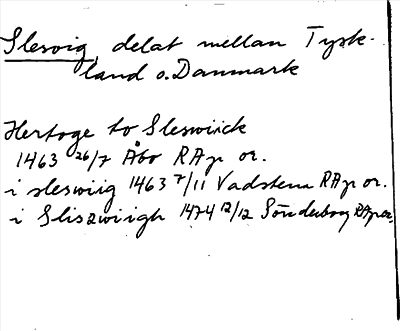 Slesvig, delat mellan Tysk-
land o. Danmark
Hertoge to Sleswiick
1463 26/7 Åbo RAp or.
i sleswiig 1463 7/11 Vadstena RAp or.
i Sliszwiigh 1474 12/12 Sönderborg RAp or.